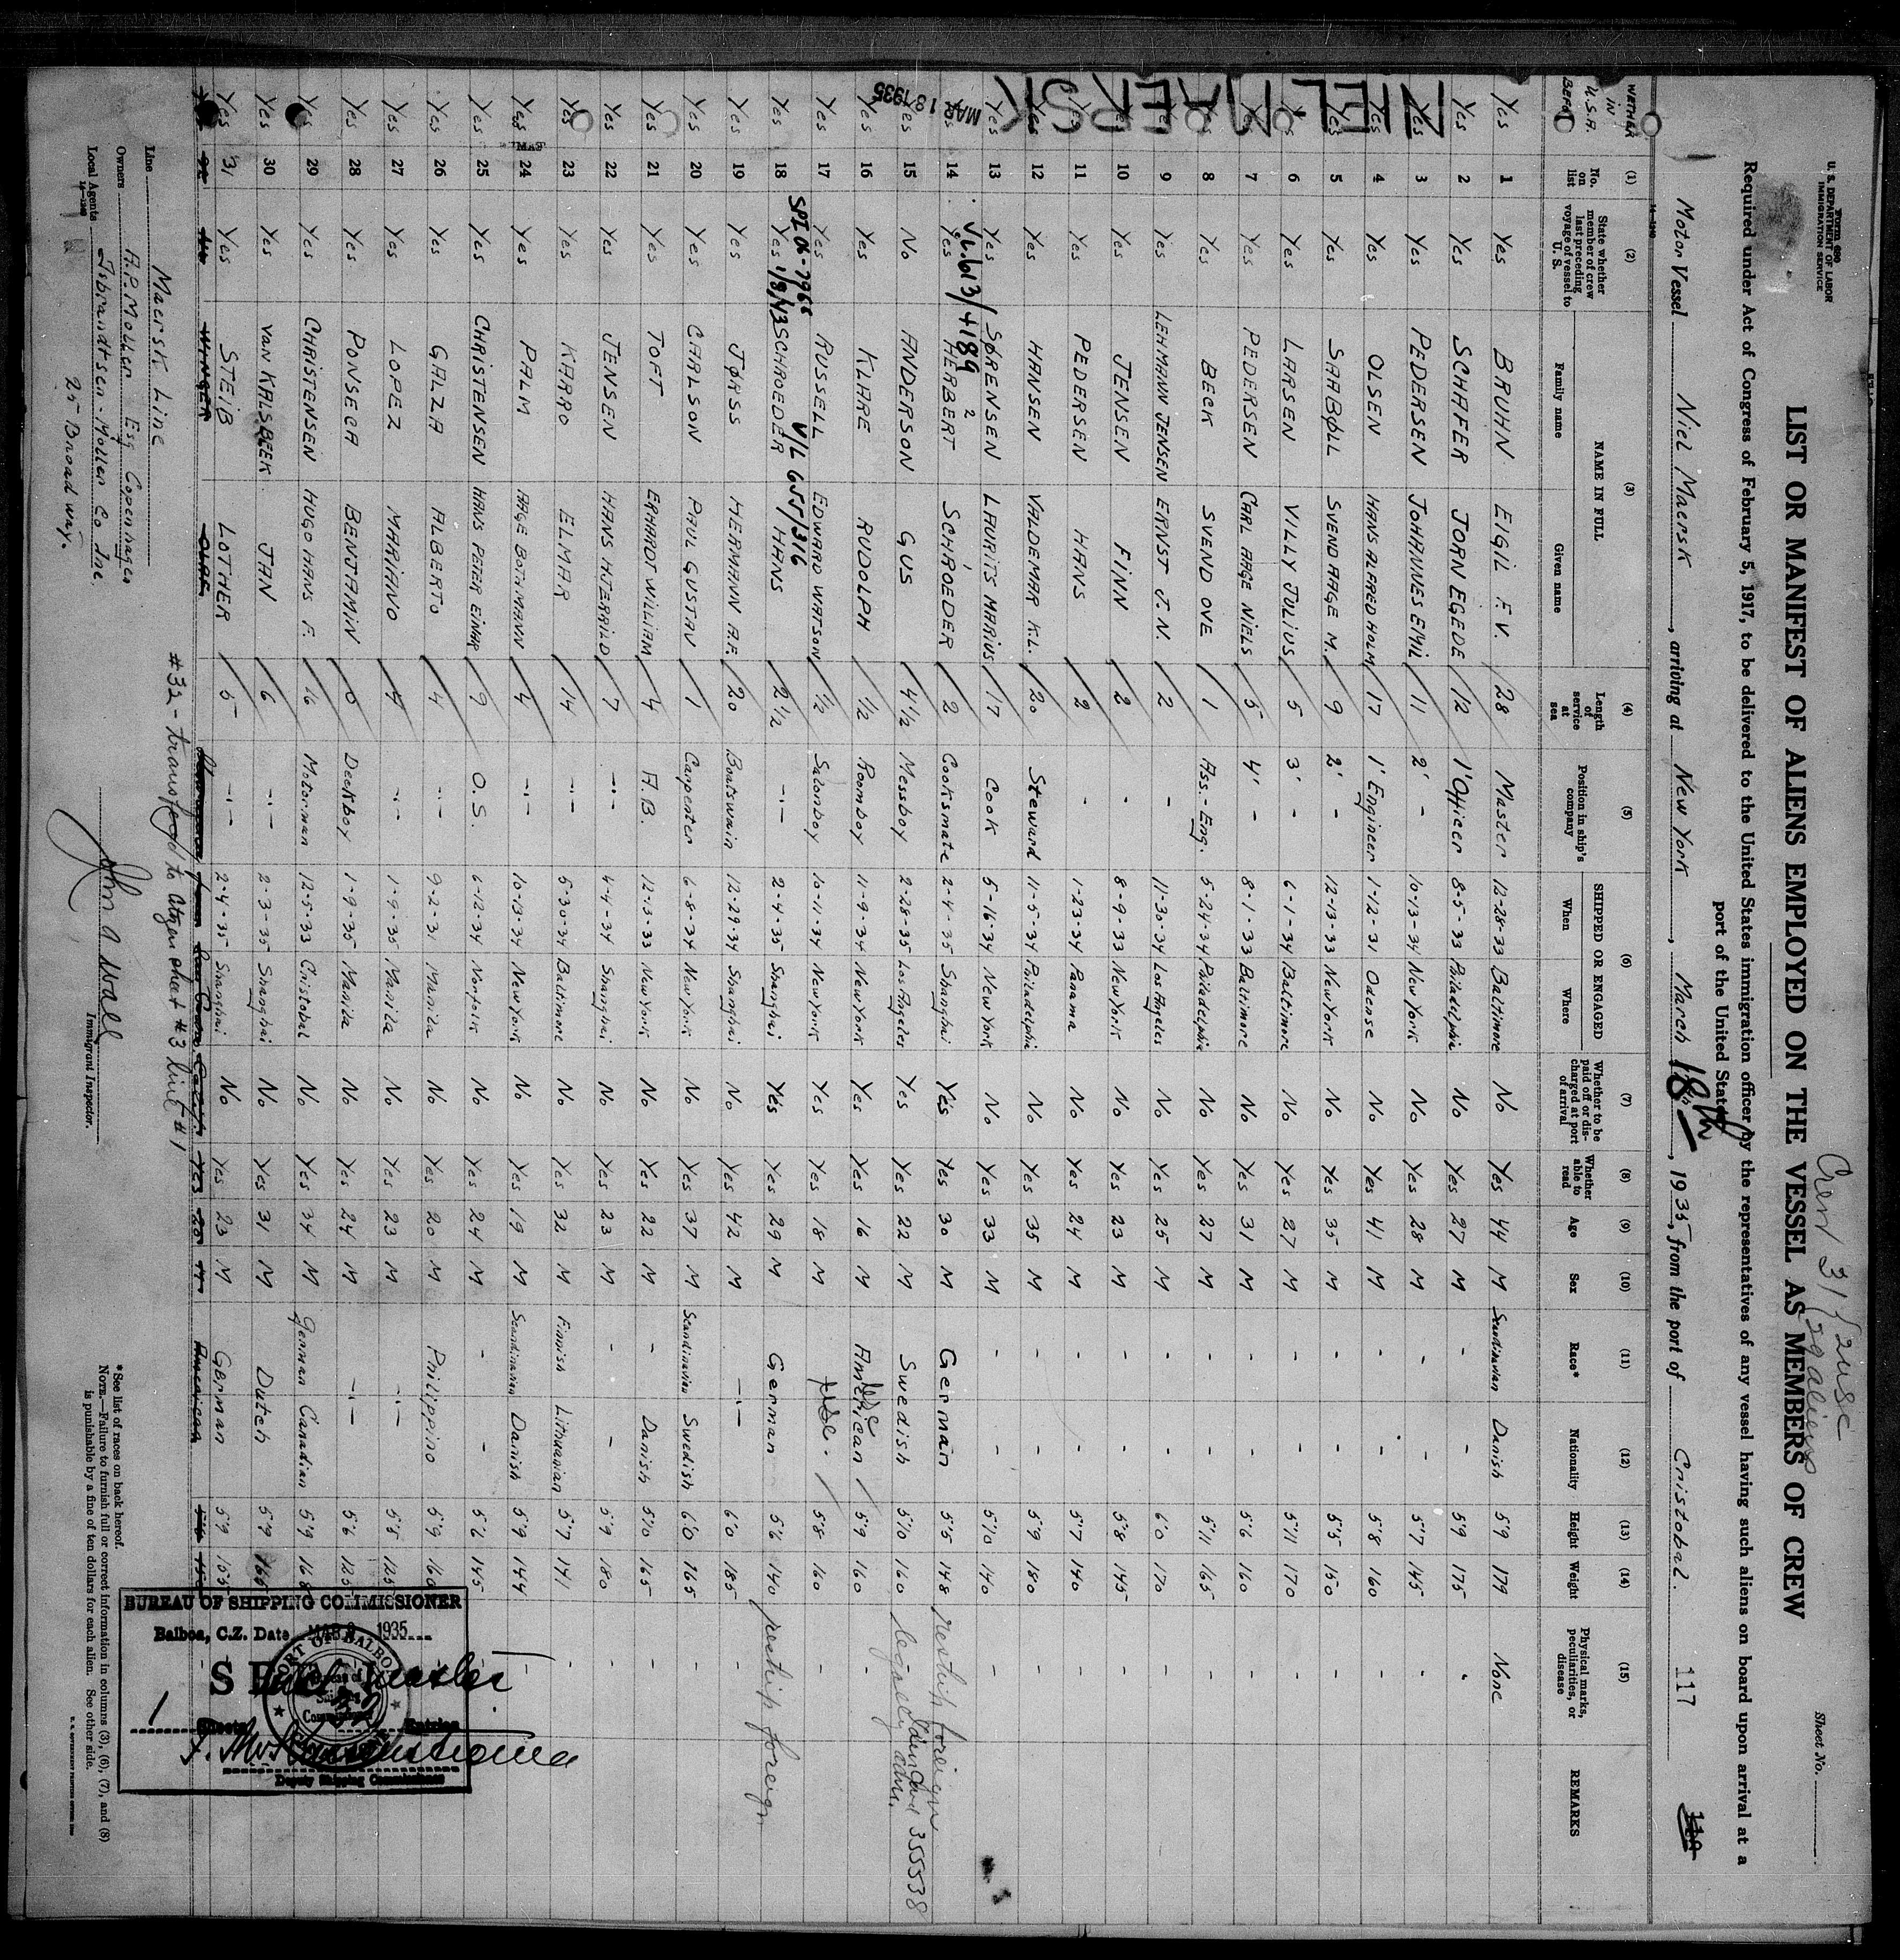 Form 680
U. S. DEPARTMENT OF LABOR
IMMIGRATION SERVICE
Sheet No.
Crew 31 { 2 USC
29 aliens
LIST OR MANIFEST OF ALIENS EMPLOYED ON THE VESSEL AS MEMBERS OF CREW
Required under Act of Congress of February 5, 1917, to be delivered to the United States immigration officer by the representatives of any vessel having such aliens on board upon arrival at a
port of the United States
Motor Vessel Niel Maersk, arriving at New York, March 18th, 1935, from the port of Cristobal. 117
WETHER IN U.S.A. BEFO
(1) No. on list
(2) State whether member of crew last preceding voyage of vessel to U. S.
(3) NAME IN FULL Family name Given name
(4) Length of service at sea
(5) Position in ship's company
(6) SHIPPED OR ENGAGED When Where
(7) Whether to be paid off or discharged at port of arrival
(8) Whether able to read
(9) Age
(10) Sex
(11) Race*
(12) Nationality
(13) Height
(14) Weight
(15) Physical marks, peculiarities, or disease
REMARKS
NIEL MAERSK
Yes 1 Yes BRUHN EIGIL F.V. 28 Master 12-28-33 Baltimore No Yes 44 M Scandinavian Danish 5'9 179 None
Yes 2 Yes SCHAFER JORN EGEDE 12 1' Officer 8-5-33 Philadelphia No Yes 27 M - - 5'9 175 -
Yes 3 Yes PEDERSEN JOHANNES EMIL 11 2' - 10-13-34 New York No Yes 28 M - - 5'7 145 -
Yes 4 Yes OLSEN HANS ALFRED HOLM 17 1' Engineer 1-12-31 Odense No Yes 41 M - - 5'8 160 -
Yes 5 Yes SAABØLL SVEND AAGE M. 9 2' - 12-13-33 New York No Yes 35 M - - 5'5 150 -
Yes 6 Yes LARSEN VILLY JULIUS 5 3' - 6-1-34 Baltimore No Yes 27 M - - 5'11 170 -
Yes 7 Yes PEDERSEN CARL AAGE NIELS 5 4' - 8-1-33 Baltimore No Yes 31 M - - 5'6 160 -
Yes 8 Yes BECK SVEND OVE 1 Ass.-Eng. 5-24-34 Philadelphia No Yes 27 M - - 5'11 165 -
9 Yes LEHMANN JENSEN ERNST J.N. 2 - 11-30-34 Los Angeles No Yes 25 M - - 6'0 170 -
10 Yes JENSEN FINN 2 - 8-9-33 New York No Yes 23 M - - 5'8 145 -
Yes 11 Yes PEDERSEN HANS 2 - 1-23-34 Panama No Yes 24 M - - 5'7 140 -
Yes 12 Yes HANSEN VALDEMAR K.L. 20 Steward 11-5-34 Philadelphia No Yes 35 M - - 5'9 180 -
Yes 13 Yes SØRENSEN LAURITS MARIUS 17 Cook 5-16-34 New York No Yes 33 M - - 5'10 140 -
V.L.613/4189
MAR 18 1935
Yes 14 Yes HERBERT SCHROEDER 2 Cooksmate 2-4-35 Shanghai Yes Yes 30 M German 5'5 148 reship foreign
Yes 15 No ANDERSON GUS 4½ Messboy 2-28-35 Los Angeles Yes Yes 22 M Swedish 5'10 160 legally adm. 355538
Yes 16 Yes KLARE RUDOLPH ½ Roomboy 11-9-34 New York Yes Yes 16 M American 5'9 160 -
Yes 17 Yes RUSSELL EDWARD WATSON ½ Salonboy 10-11-34 New York Yes Yes 18 M USC. 5'8 160 -
V/L 655/316
Yes 18 Yes SCHROEDER HANS 2½ -"- 2-4-35 Shanghai Yes Yes 29 M German 5'6 140 reship foreign
Yes 19 Yes JØRSS HERMANN A.F. 20 Boatswain 12-29-34 Shanghai No Yes 42 M -"- 6'0 185 -
Yes 20 Yes CARLSON PAUL GUSTAV 1 Carpenter 6-8-34 New York No Yes 37 M Scandinavian Swedish 6'0 165 -
Yes 21 Yes TOFT ERHARDT WILLIAM 4 A.B. 12-13-33 New York No Yes 22 M - Danish 5'10 165 -
Yes 22 Yes JENSEN HANS HJERRILD 7 -"- 4-4-34 Shanghai No Yes 23 M - - 5'9 180 -
Yes 23 Yes KARRO ELMAR 14 -"- 5-30-34 Baltimore No Yes 32 M Finnish Lithuanian 5'7 141 -
Yes 24 Yes PALM AAGE BOTHMANN 4 -"- 10-13-34 New York No Yes 19 M Scandinavian Danish 5'9 144 -
Yes 25 Yes CHRISTENSEN HANS PETER EINAR 9 O.S. 6-12-34 Norfolk No Yes 24 M - - 5'6 145
Yes 26 Yes GALZA ALBERTO 4 -"- 9-2-31 Manila No Yes 20 M Philippino 5'9 160
Yes 27 Yes LOPEZ MARIANO 4 -"- 1-9-35 Manila No Yes 23 M -"- 5'5 125
Yes 28 Yes PONSECA BENJAMIN 0 Deckboy 1-9-35 Manila No Yes 24 M -"- 5'6 125
Yes 29 Yes CHRISTENSEN HUGO HANS F. 16 Motorman 12-5-33 Cristobal No Yes 34 M German Canadian 5'9 168
Yes 30 Yes VAN KALSBEEK JAN 6 -"- 2-3-35 Shanghai No Yes 31 M Dutch 5'9 165
Yes 31 Yes STEIB LOTHER 5 -"- 2-4-35 Shanghai No Yes 23 M German 5'9 155
#32 - transfered to Citizen sheet #3 line #1
Line Maersk Line
Owners A.P. Moller Esq Copenhagen
Local Agents Isbrandtsen-Moller Co Inc.
25 Broadway.
John A Wall
Immigrant Inspector.
*See list of races on back hereof.
NOTE.—Failure to furnish full or correct information in columns (3), (6), (7), and (8)
is punishable by a fine of ten dollars for each alien. See other side.
BUREAU OF SHIPPING COMMISSIONER
Balboa, C.Z. Date MAR 1935
PORT OF BALBOA
1 Sheets Entries
Deputy Shipping Commissioner